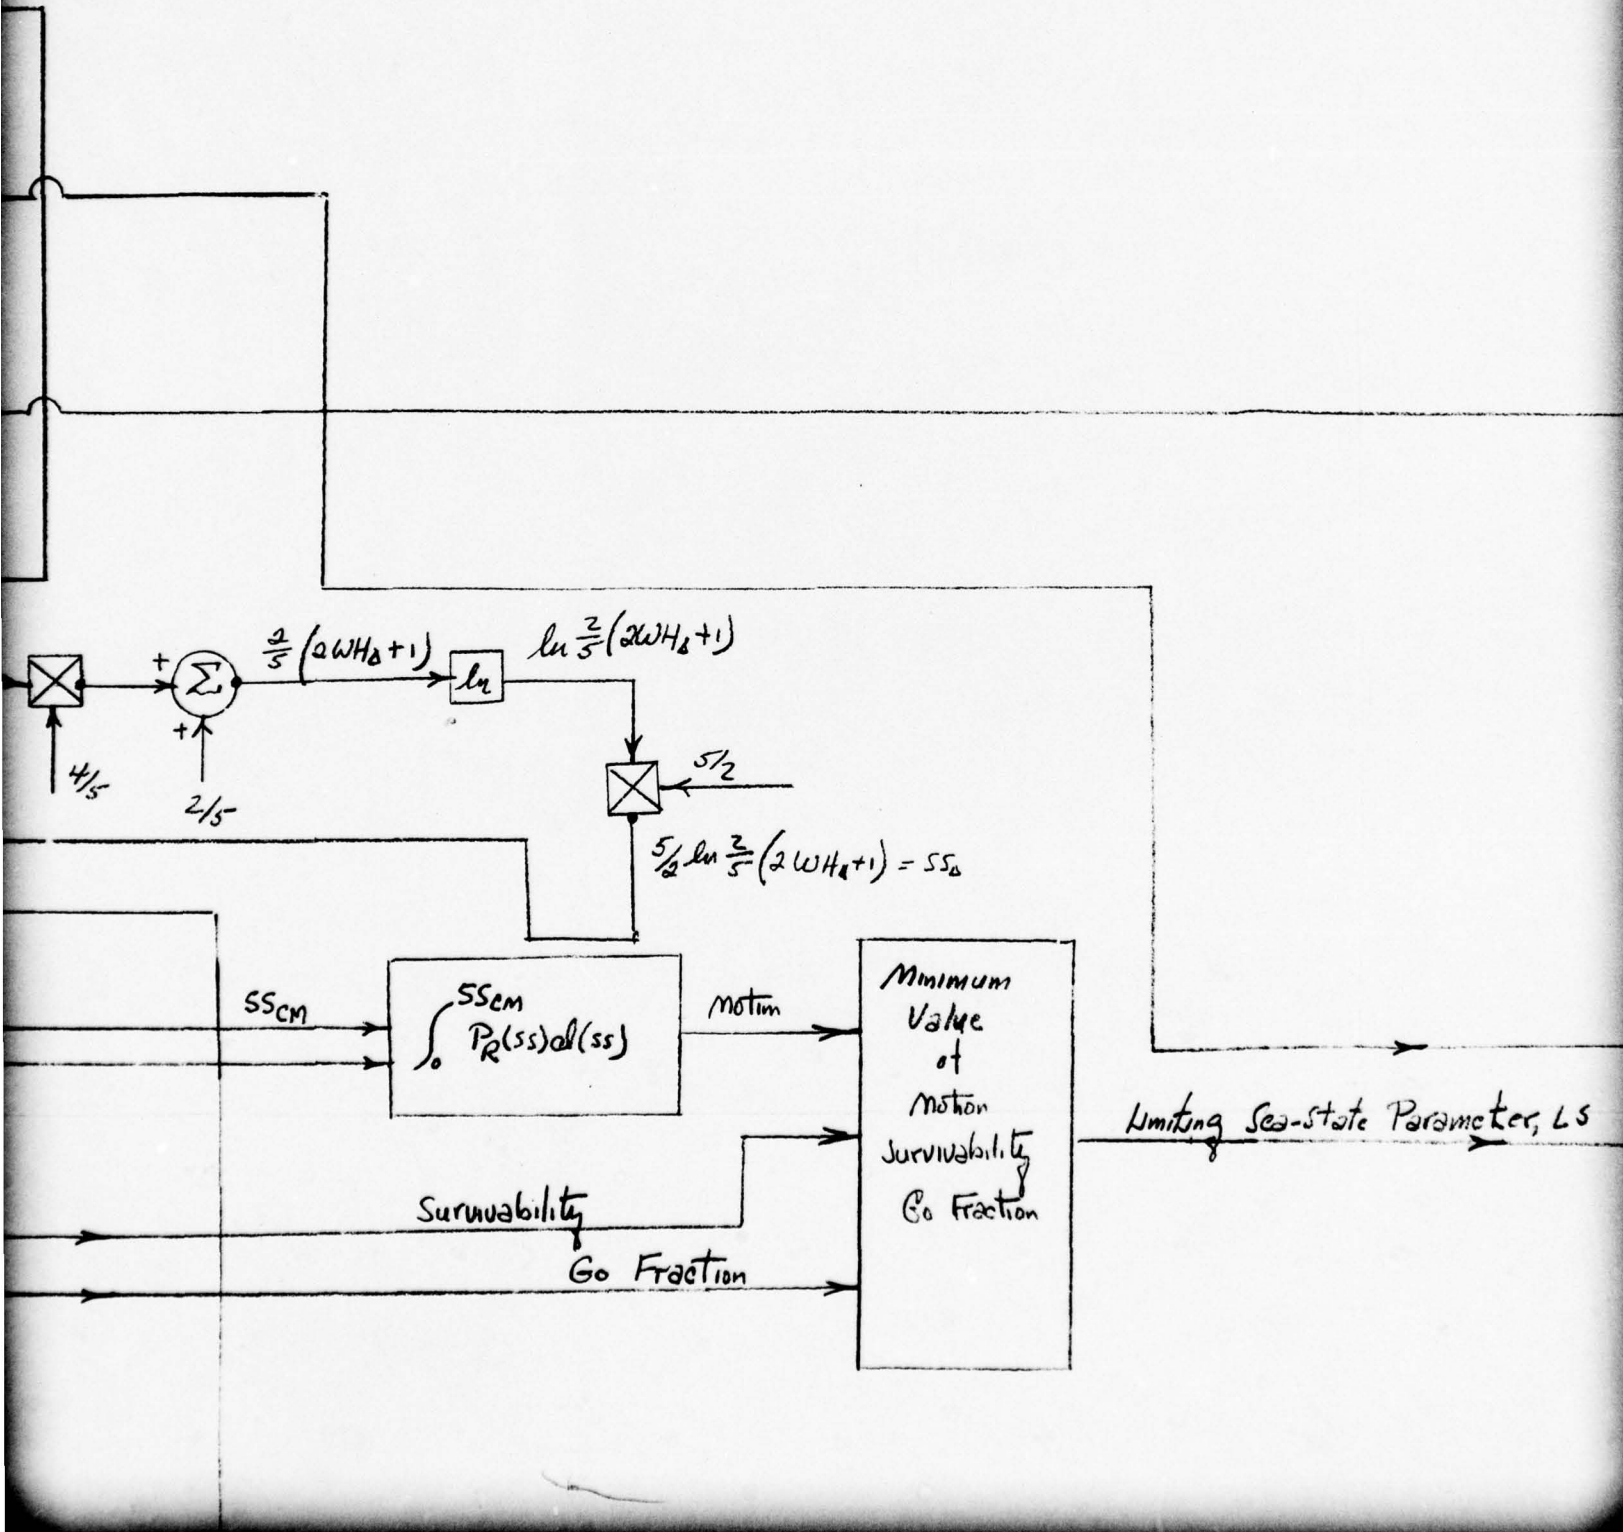 2/5 (2WH∆+1)
ln 2/5 (2WH∆+1)
+
Σ
ln
+
4/5
2/5
5/2
5/2 ln 2/5 (2WH∆+1) = SS∆
SSCM
∫₀^SSCM PR(SS)d(SS)
Motion
Minimum
Value
of
Motion
Survivability
Go Fraction
Limiting Sea-State Parameter, LS
Survivability
Go Fraction